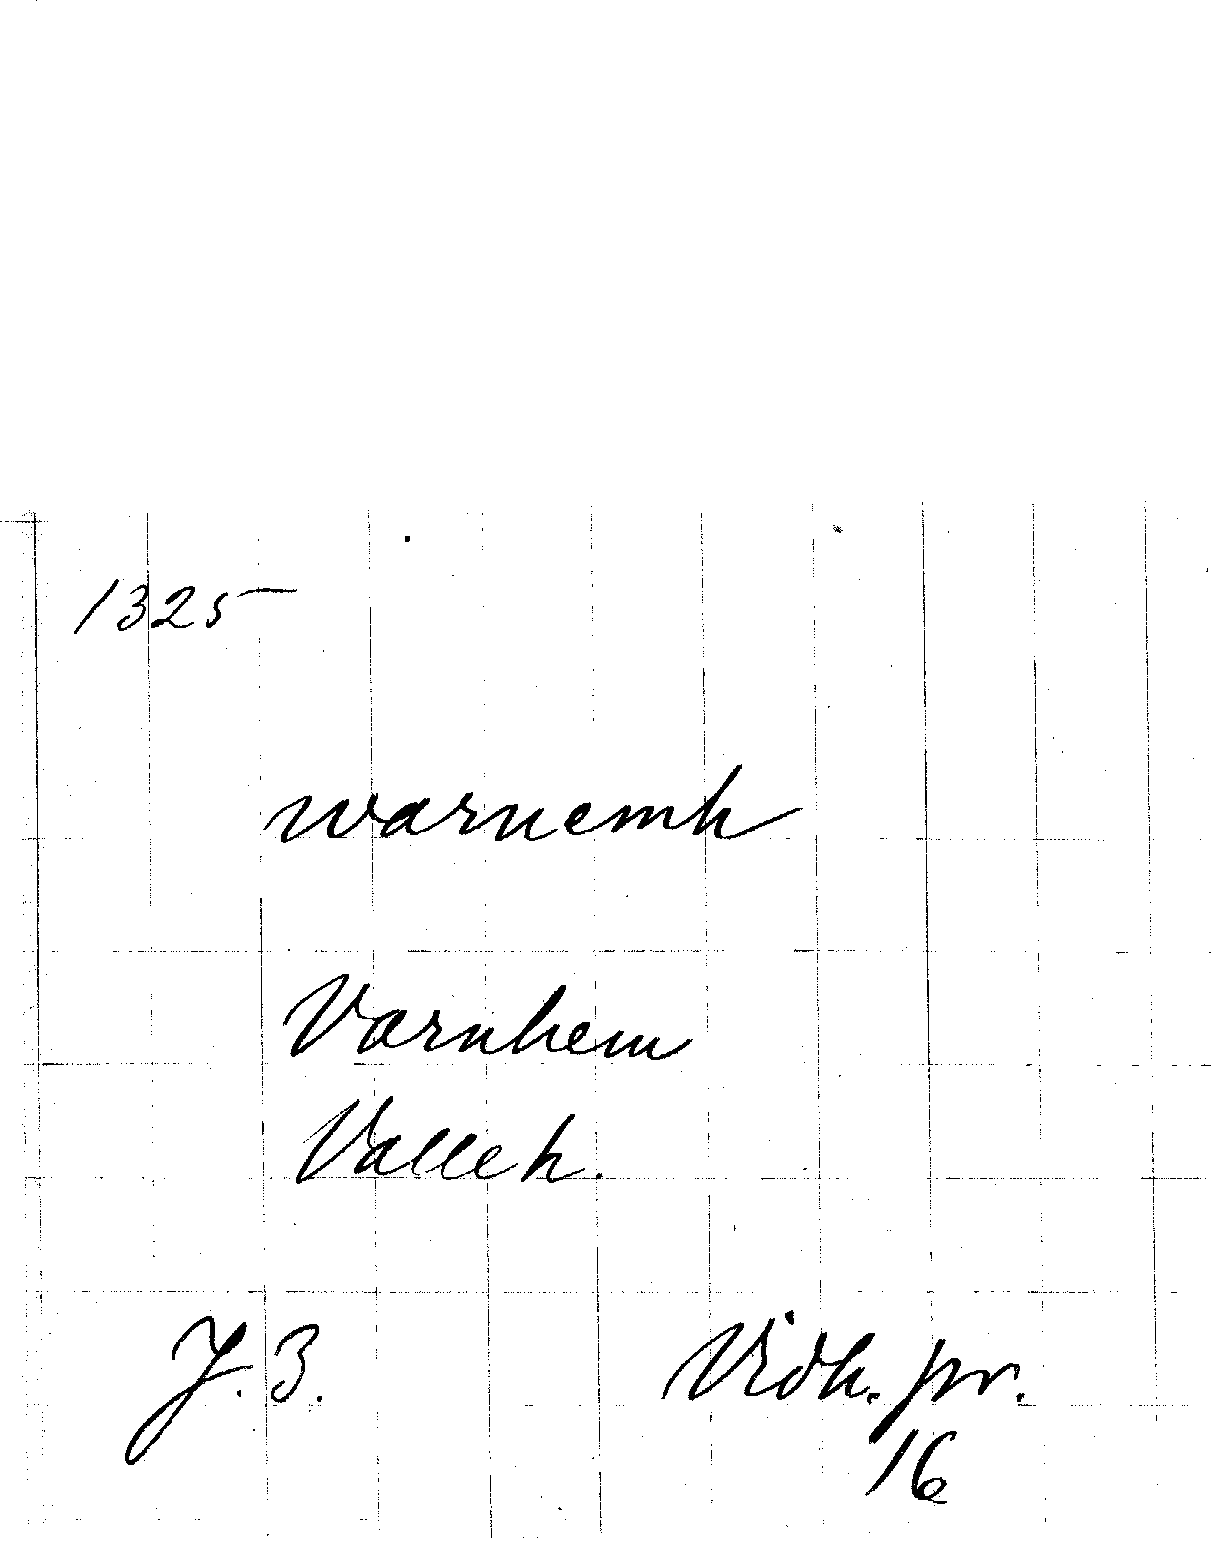 1325
warnemh
Varnhem
Valle h.
J. 3. Vidh. pr.
16